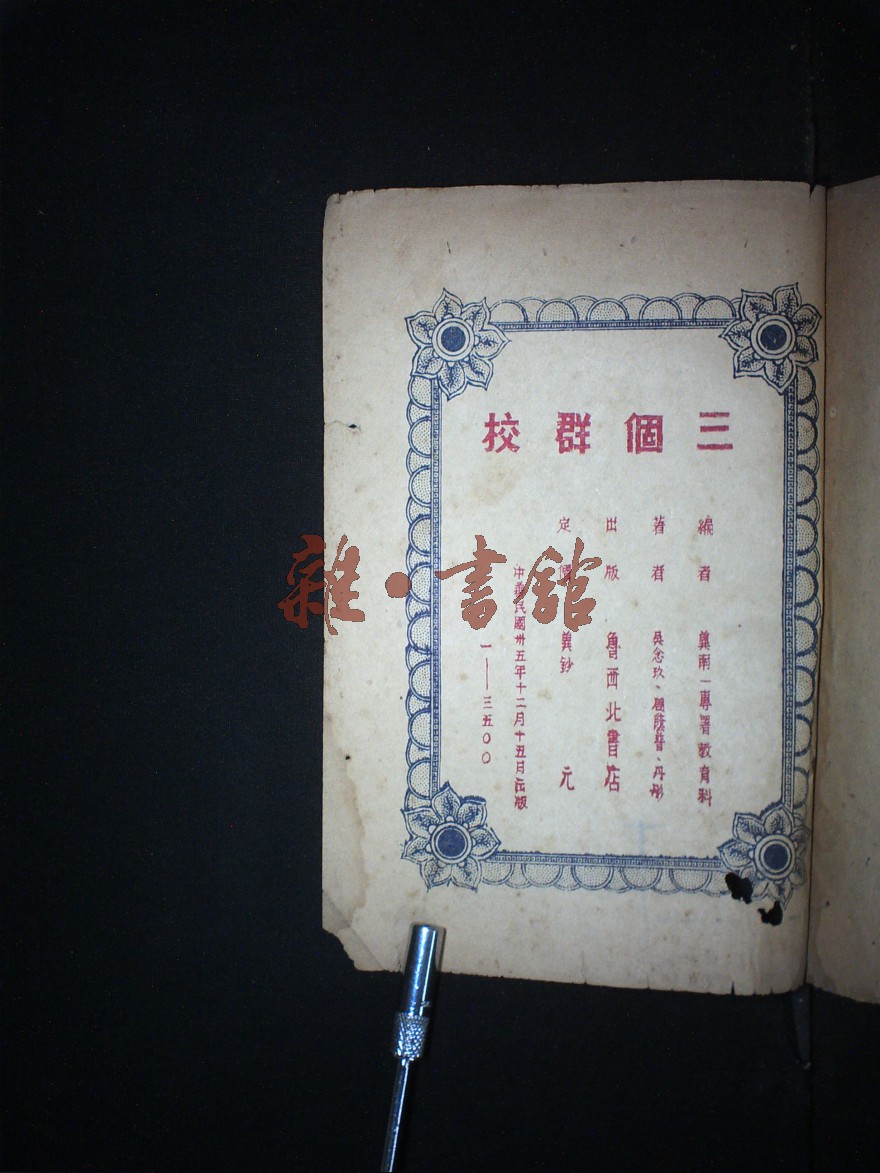 三個群校
編者 冀南一專署教育科
著者 吳念玖、 丹彤
出版 魯西北書店
定價冀鈔 元
中華民國卅五年十二月十五日出版
一——三五〇〇
雜·書館